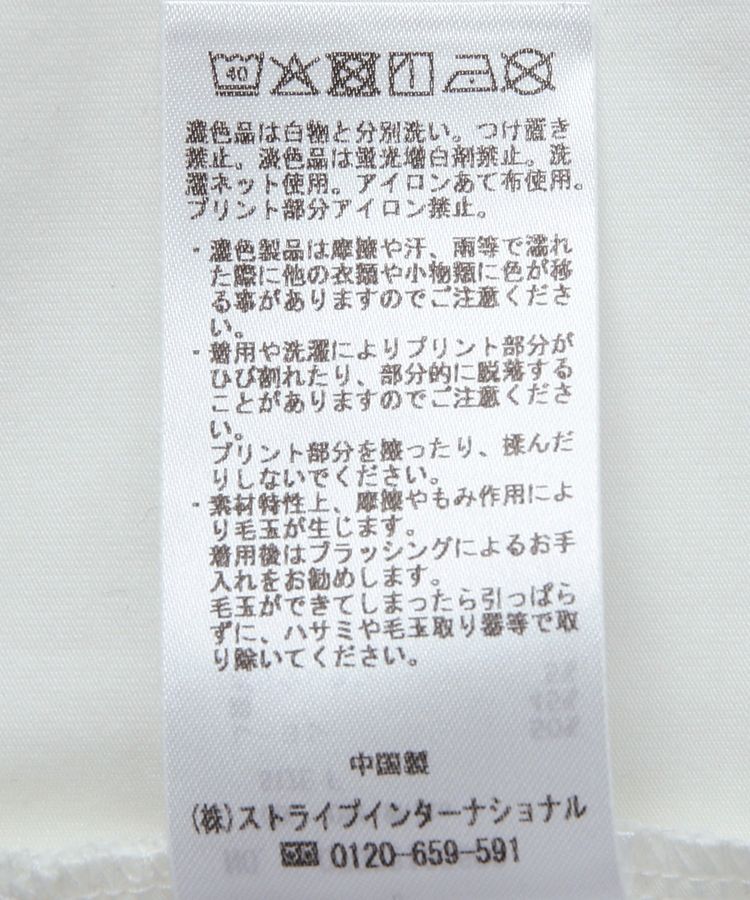 40
濃色品は白物と分別洗い。つけ置き
禁止。淡色品は蛍光増白剤禁止。洗
濯ネット使用。アイロンあて布使用。
プリント部分アイロン禁止。
・濃色製品は摩擦や汗、雨等で濡れ
た際に他の衣類や小物類に色が移
る事がありますのでご注意くださ
い。
・着用や洗濯によりプリント部分が
ひび割れたり、部分的に脱落する
ことがありますのでご注意くださ
い。
プリント部分を擦ったり、揉んだ
りしないでください。
・素材特性上、摩擦やもみ作用によ
り毛玉が生じます。
着用後はブラッシングによるお手
入れをお勧めします。
毛玉ができてしまったら引っぱら
ずに、ハサミや毛玉取り器等で取
り除いてください。
中国製
(株)ストライプインターナショナル
0120-659-591